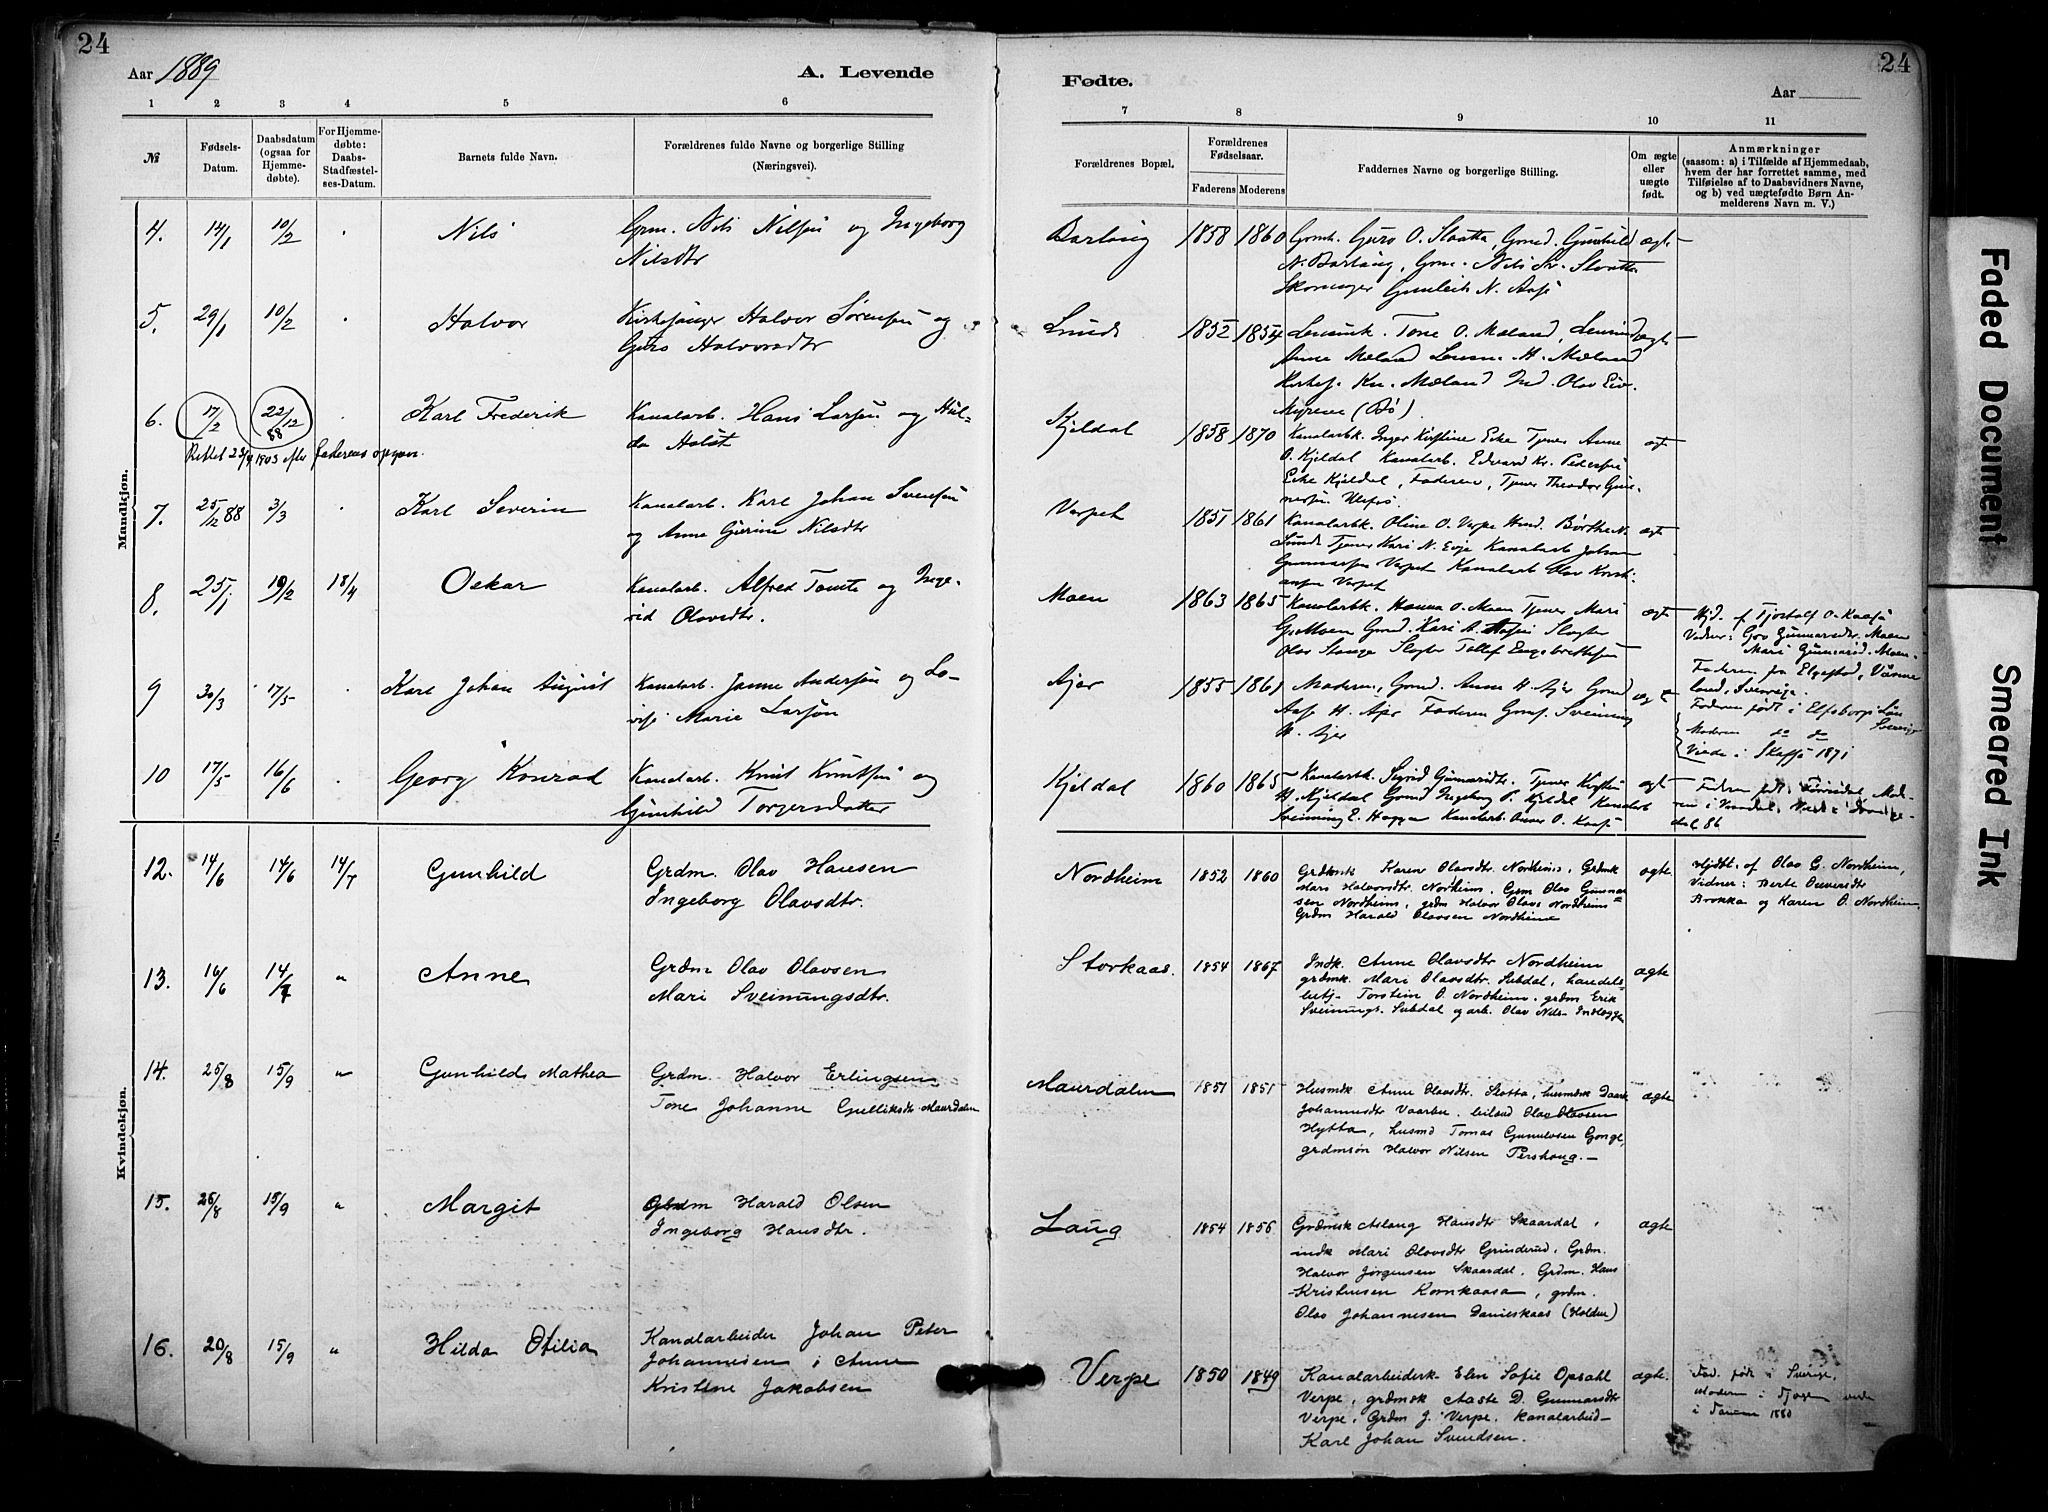 24
24
Aar 1889
A. Levende
Fødte.
Aar
1 2 3 4 5 6
7 8 9 10 11
№
Fødsels-
Datum.
Daabsdatum
(ogsaa for
Hjemme-
døbte).
For Hjemme-
døbte:
Daabs-
Stadfæstel-
ses-Datum.
Barnets fulde Navn.
Forældrenes fulde Navne og borgerlige Stilling
(Næringsvei).
Forældrenes Bopæl.
Forældrenes
Fødselsaar.
Faderens Moderens
Faddernes Navne og borgerlige Stilling.
Om ægte
eller
uægte
født.
Anmærkninger
(saasom: a) i Tilfælde af Hjemmedaab,
hvem der har forrettet samme, med
Tilføielse af to Daabsvidners Navne,
og b) ved uægtefødte Børn An-
melderens Navn m. V.)
Mandkjøn.
4. 14/1 10/2 Nils
Grm. Nils Nilsen og Ingeborg
Nilsdtr
1858 1860
Guro O. Slaatta, Gunhild
ægte
5. 29/1 10/2 Halvor
Kirkesanger Halvor Sørensen og
Guro Halvorsdtr
Lunde 1852 1854
Tone O. Mæland,
Anne Mæland Lensm. H. Mæland
Kirkes. Kn. Mæland Ind. Olav
Myrene (Bø).
ægte
6. 17/2 22/12 88 Karl Frederik
Kanalarb. Hans Larsen og Hul-
da Holst
Rettet 1903 efter faderens opgave.
Kjeldal 1858 1870
Kanalarbk. Inger Kirstine Eike Tjener Anne
O. Kjeldal Kanalarb. Edvard Kr. Pedersen
Eike Kjeldal, Faderen, Tjener Theodor Gun-
Ulefos.
ægt
7. 25/12 88 3/3 Karl Severin
Kanalarb. Karl Johan Svensen
og Anne Gurine Nilsdtr
Verpet 1851 1861
Kanalarbk. Oline O. Verpe Husd. Børthe N.
Lunde Tjener Kari N. Evje Kanalarb Johan
Gunnarsen Verpet Kanalarb Olav Krist-
ansen Verpet
ægt
8. 25/1 19/2 18/4 Oskar
Kanalarb. Alfred Tomte og Inge-
rid Olavsdtr.
Moen 1863 1865
Kanalarbk. Hanna O. Moen Tjener Mari
G. Moen Gmd. Kari A. Slagter
Olav Stange Slagter Tollef Engebrettsen
ægt
Hjd. af Tjostolf O. Kaasa
Vidner: Gro Gunnarsdtr. Moen
Mari Gunnarsd. Moen
9 30/3 17/5 Karl Johan August
Kanalarb. Janne Andersen og Lo-
vise Marie Larsen
Ajer 1855 1861
Moderen, Gmd. Anne H. Ajer Gmd
Aase H. Ajer Faderen Sveinung
H. Ajer
ægt
Faderen fra
Sverige.
Faderen født i Elfsborgs Län
Sverige
Moderen do do
Viede i 1871
10 17/5 16/6 Georg Konrad
Kanalarb. Knut Knutsen og
Gunhild Torgersdatter
Kjeldal 1860 1865
Kanalarbk. Sigrid Gunnarsdtr. Tjener Kirsten
H. Kjeldal Gmd Ingeborg P. Kjeldal Kanalarb
Sveinung E. Hagga Kanalarb. Anver O. Kaasa
ægt
Faderen født i
86
Kvindekjøn.
12. 14/6 14/6 14/7 Gunhild
Grdm. Olav Hansen
Ingeborg Olavsdtr.
Nordheim 1852 1860
Grdmsk Karen Olavsdtr Nordheim, Grdmsk
Mari Halvorsdtr. Nordheim. Grm Olav Gunnar
sen Nordheim, grdm Halvor Olavs Nordheim
Grdm Harald Olavsen Nordheim
ægte
Hjdbt. af Olav G. Nordheim,
Vidner: Berte Ouversdtr
Brokka og Karen O. Nordheim.
13. 16/6 14/7 " Anne
Grdm Olav Olavsen
Mari Sveinungsdtr.
Storkaas. 1854 1867
Indk. Anne Olavsdtr Nordheim
grdmsk. Mari Olavsdtr. Subdal, handels-
betj- Torstein O. Nordheim. grdm Erik
Sveinungs. Subdal og arb. Olav Nils- Indlæggen
ægte
14. 25/8 15/9 " Gunhild Mathea
Grdm. Halvor Erlingsen
Tone Johanne Gulliksdr. Maurdalen
Maurdalen 1851 1851
Husmdk Anne Olavsdtr. Slotta, husmdsk Daart
Johannesdtr Vaarbu. Olav Olavsen
Hytta, husmd Tomas Gunulvsen Gonge,
grdmsøn Halvor Nilsen Pershaug.-
ægte
15. 26/8 15/9 " Margit
Grdm Harald Olsen
Ingeborg Hansdtr.
Laug 1854 1856
Grdmsk Aslaug Hansdtr Skaardal,
indk Mari Olavsdtr Grinderud, Grdm.
Halvor Jørgensen Skaardal. Grdm. Hans
Kristensen Kornkaasa, grdm.
Olav Johannesen Danieskaas (Holden)
ægte
16. 20/8 15/9 " Hilda Otilia
Kanalarbeider Johan Peter
Johannesen i Anne
Kristine Jakobsen
Verpe 1850 1849
Kanalarbeidersk Elen Sofie Opsahl
Verpe, grdmsk Aaste D. Gunnarsdtr
Verpe, Grdm J. Verpe. kanalarbeid-
Karl Johan Svendsen.
ægte.
Fad. født i Sverige,
Moderen i
i 1880
Faded Document
Smeared Ink